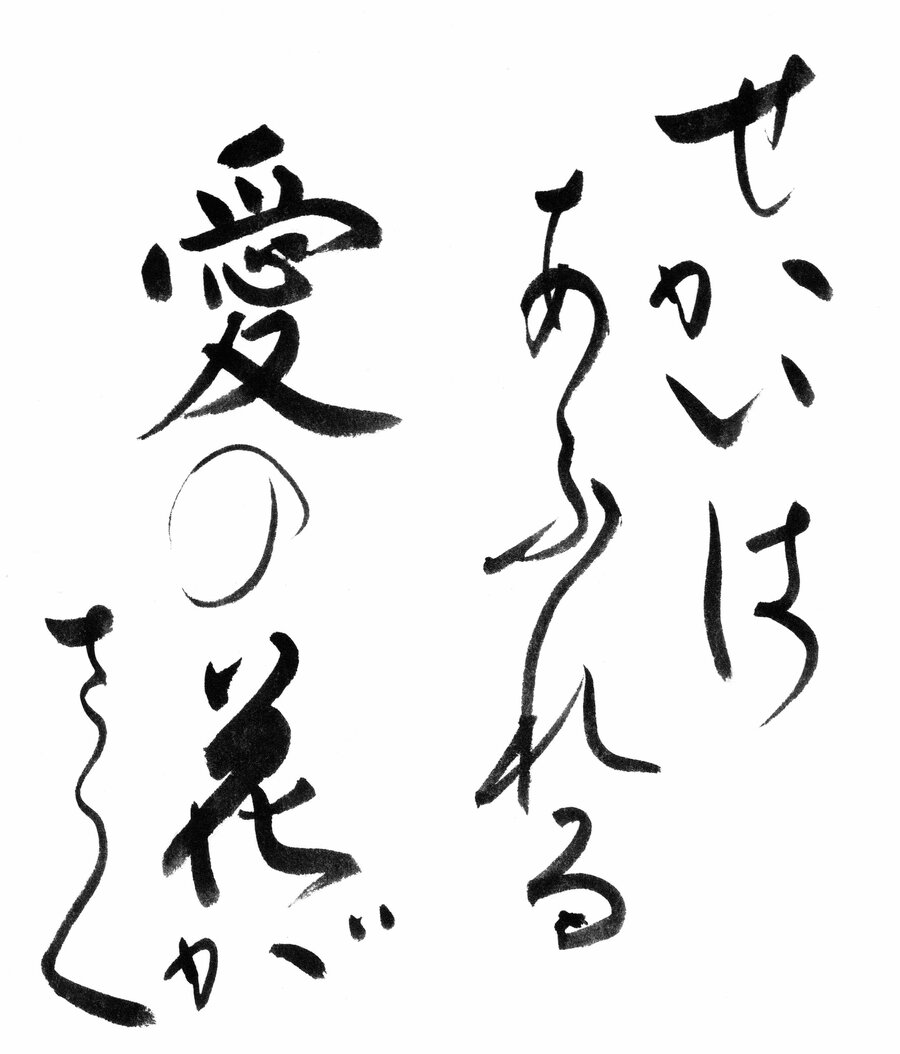 せかいは
あふれる
愛の花が
さく